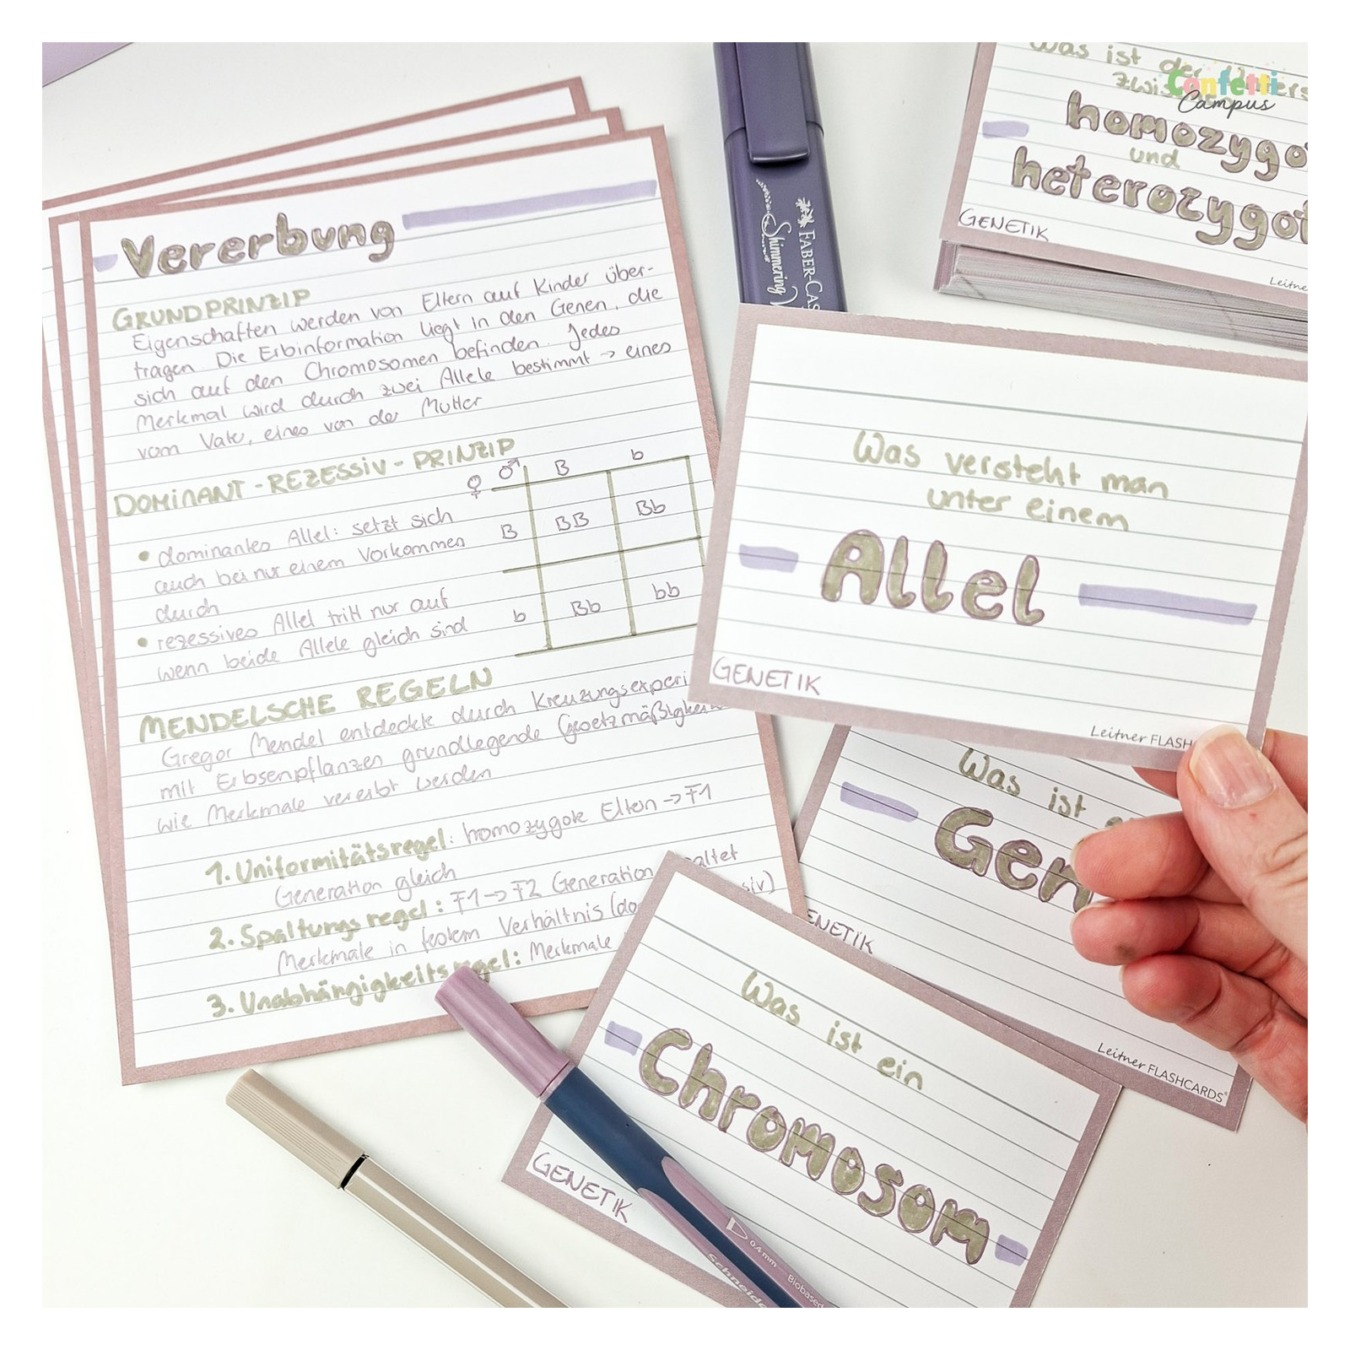 Confetti
Campus
Vererbung
GRUNDPRINZIP
Eigenschaften werden von Eltern auf Kinder über-
tragen. Die Erbinformation liegt in den Genen, die
sich auf den Chromosomen befinden. Jedes
Merkmal wird durch zwei Allele bestimmt → eines
vom Vater, eines von der Mutter
DOMINANT-REZESSIV-PRINZIP
• dominantes Allel: setzt sich
auch bei nur einem Vorkommen
durch
• rezessives Allel tritt nur auf
wenn beide Allele gleich sind
♀ ♂ B b
B BB Bb
b Bb bb
MENDELSCHE REGELN
Gregor Mendel entdeckte durch Kreuzungsexperi
mit Erbsenpflanzen grundlegende Gesetzmäßigkei
wie Merkmale vererbt werden
1. Uniformitätsregel: homozygote Eltern → F1
Generation gleich
2. Spaltungsregel: F1 → F2 Generation altet
Merkmale in festem Verhältnis (do siv)
3. Unabhängigkeitsregel: Merkmale
FABER-CAS
Shimmering
Was ist der
homozygo
und
heterozygot
GENETIK
Leitne
Was versteht man
unter einem
Allel
GENETIK
Leitner FLASH
Was ist e
Gen
ENETIK
Leitner FLASHCARDS
Was ist ein
Chromosom
GENETIK
0.4 mm Biobased
schneide